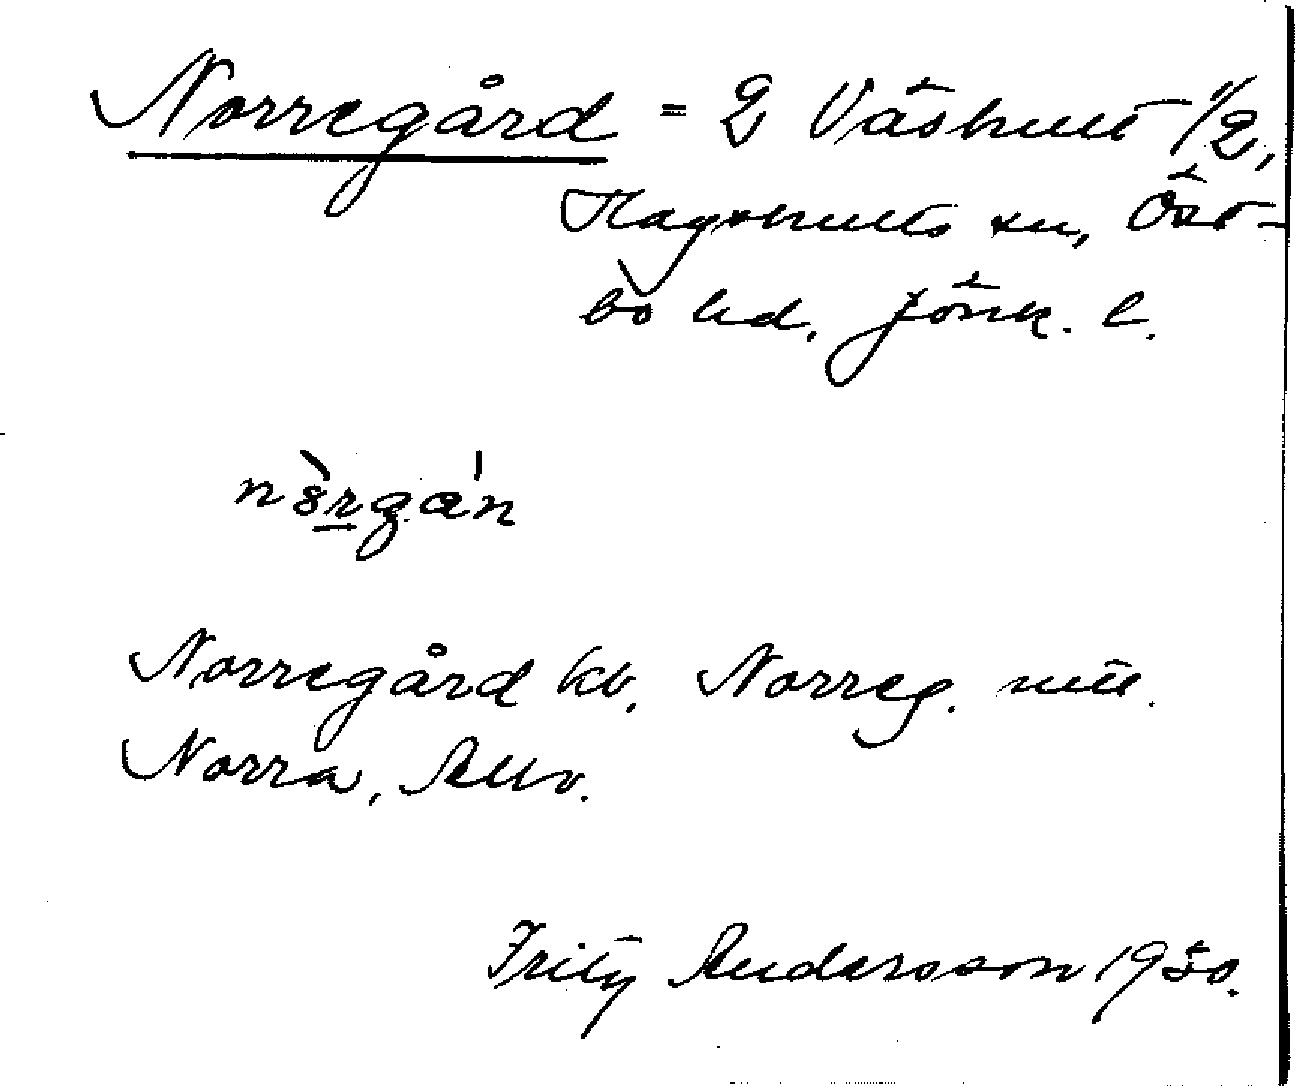 Norregård = 2 Väshult 1/2,
Hagshults sn, Öst-
bo hd, Jönk. l.
Norregård kb, Norreg.
Norra, Allv.
Fritz Andersson 1930.